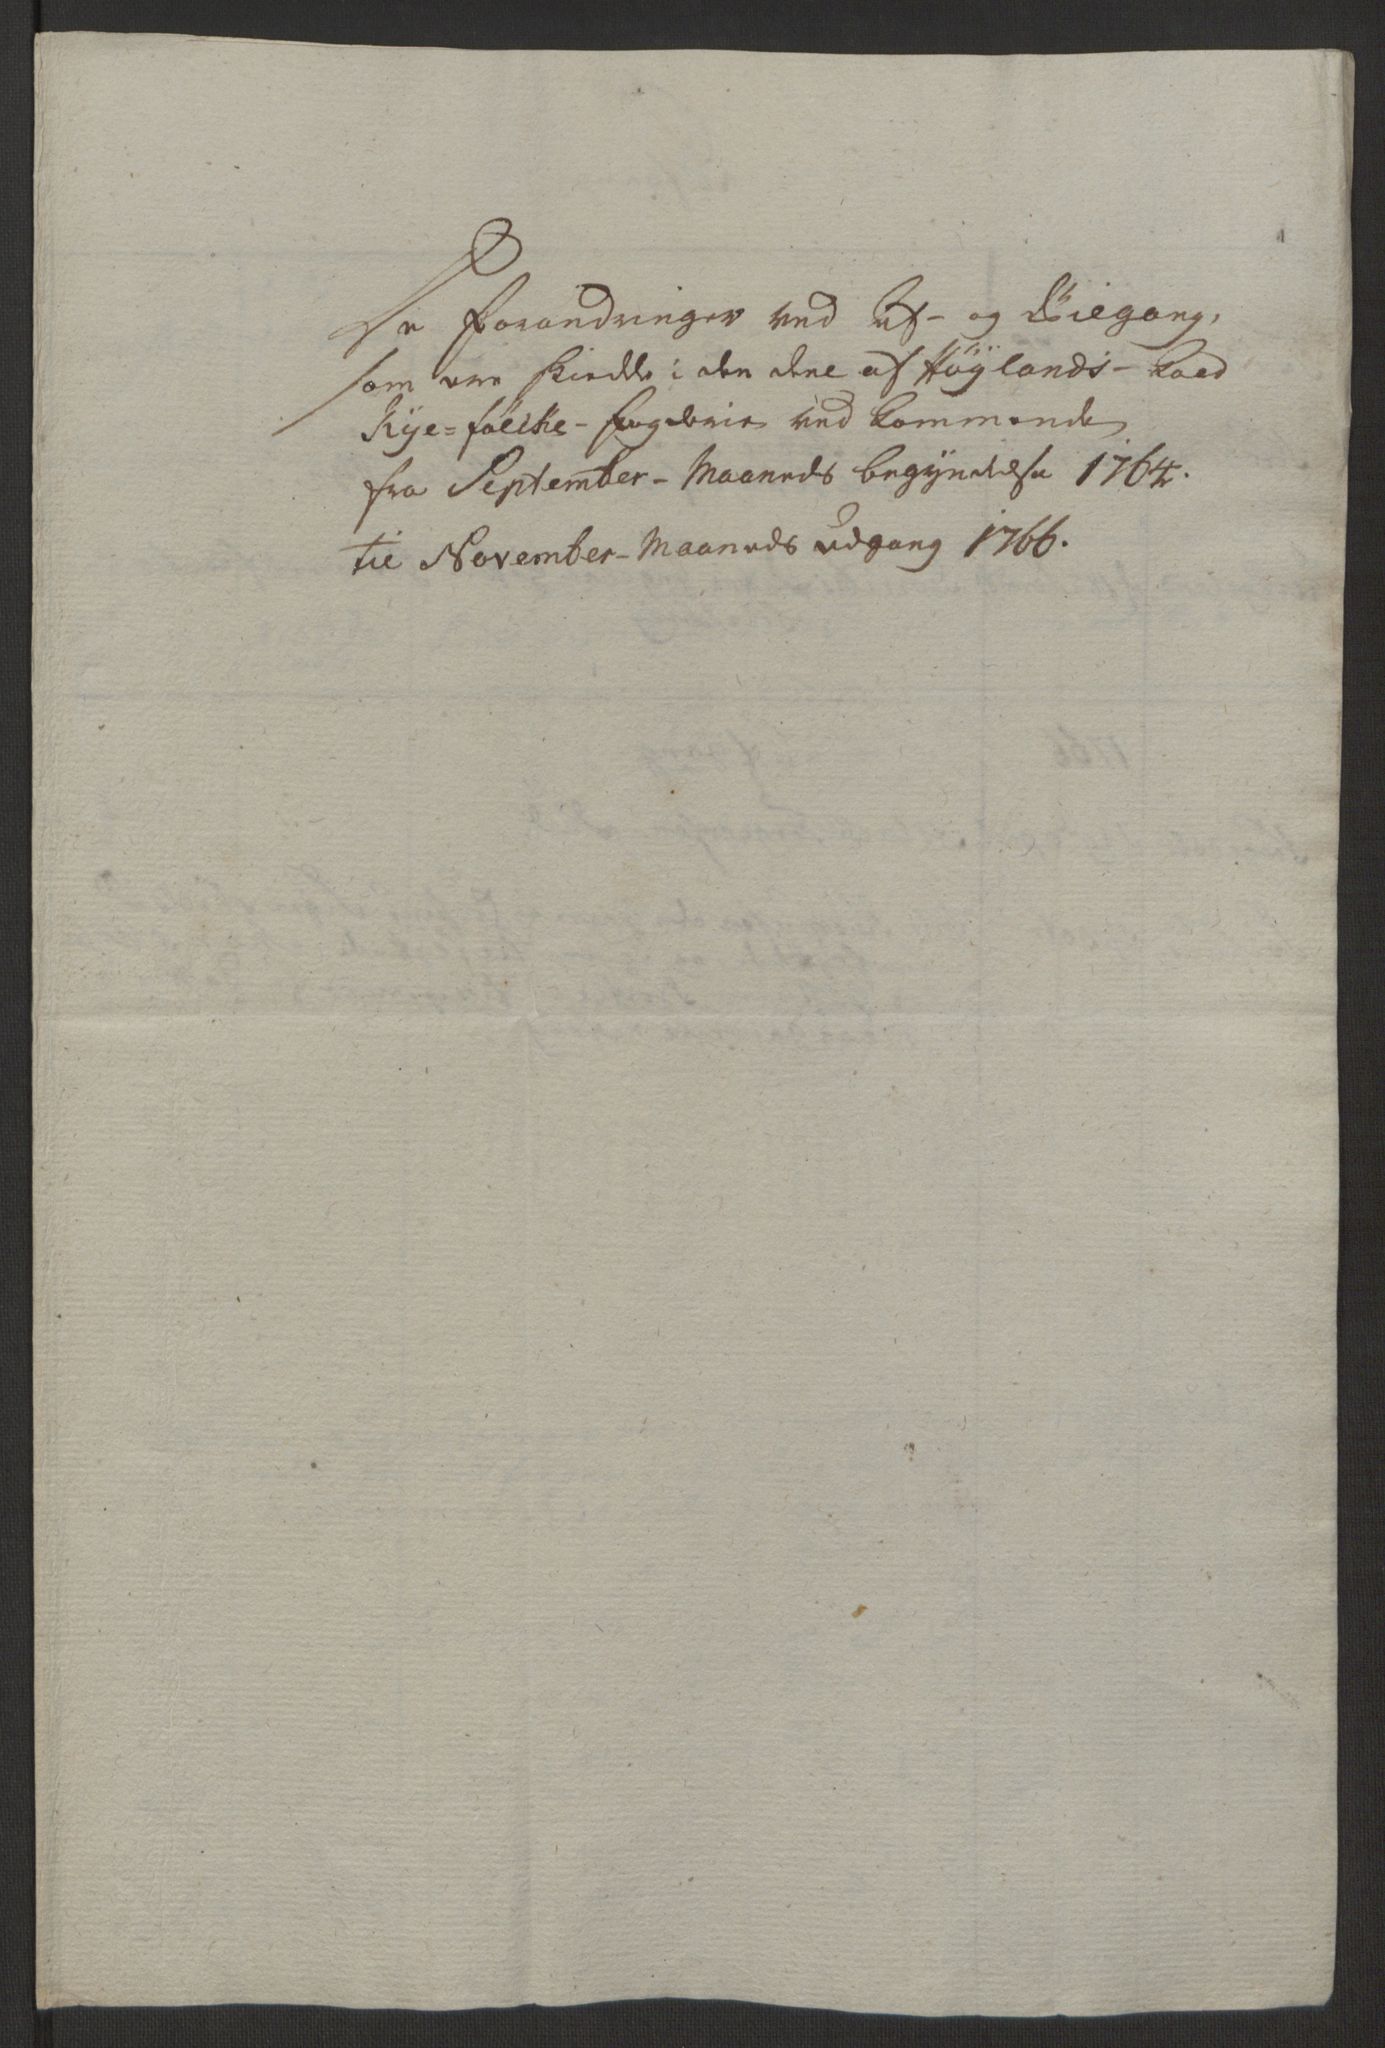 De Forandringer ved af- og Tilgang,
som ere skeedde i den deel af Höylands-
Rye-fölcke-fogderie ved kommende
fra September-Maaneds begÿndelse 1764.
til November-Maaneds udgang 1766.